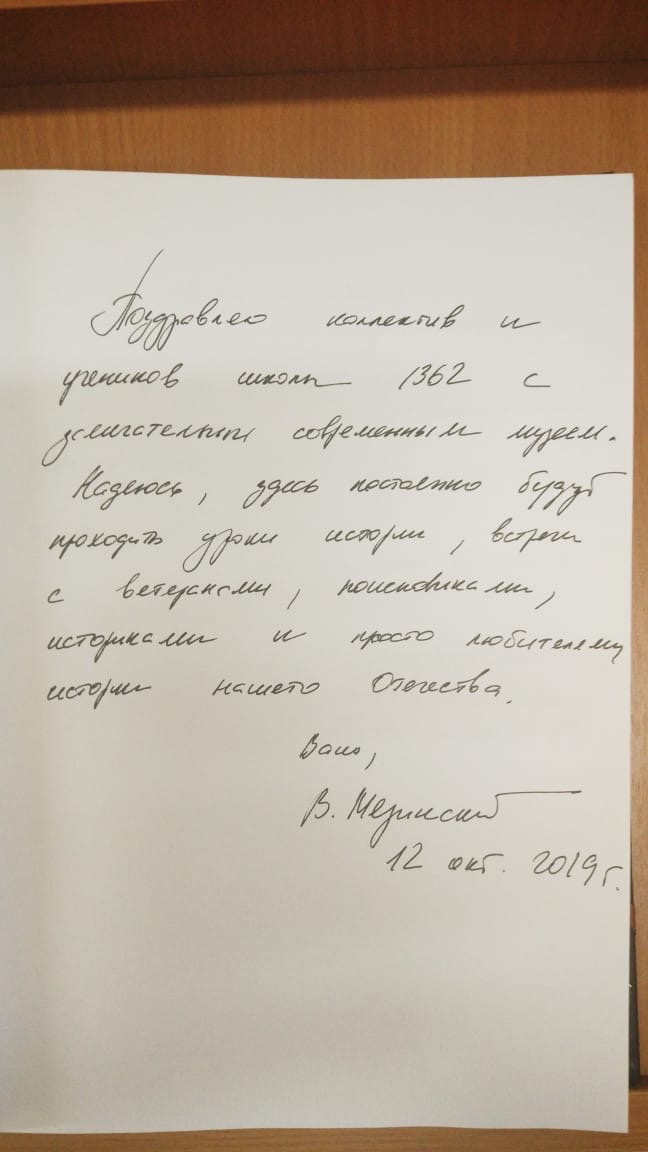 Поздравляю коллектив и
учеников школы 1362 с
замечательным современным музеем.
Надеюсь, здесь постоянно будут
проходить уроки истории, встречи
с ветеранами, поисковиками,
историками и просто любителями
истории нашего Отечества.
Ваш,
В. Мединский
12 окт. 2019 г.